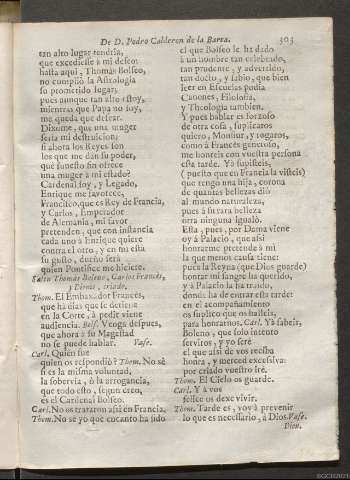 De D. Pedro Calderon de la Barca. 303
tan alto lugar tendria,
que excediesse à mi deseo:
hasta aqui, Thomàs Bolseo,
no cumpliò la Astrologia
su prometido lugar;
pues aunque tan alto estoy,
mientras que Papa no soy,
me queda que desear.
Dixome, que una muger
seria mi destruicion;
si ahora los Reyes son
los que me dàn su poder,
què funesto fin ofrece
una muger à mi estado?
Cardenal soy, y Legado,
Enrique me favorece,
Francisco, que es Rey de Francia,
y Carlos, Emperador
de Alemania, mi favor
pretenden, que con instancia
cada uno à Enrique quiere
contra el otro, y en mi està
su gusto, dueño serà
quien Pontifice me hiciere.
Salen Thomàs Boleno, Carlos Francès,
y Dionis, criado.
Thom. El Embaxador Francès,
que ha dias que se detiene
en la Corte, à pedir viene
audiencia. Bols. Venga despues,
que ahora à su Magestad
no se puede hablar. Vase.
Carl. Quien fue
quien os respondiò? Thom. No sè
si es la misma voluntad,
la sobervia, ò la arrogancia,
que todo esto, segun creo,
es el Cardenal Bolseo.
Carl. No os trataron assi en Francia.
Thom. No se yo què encanto ha sido
el que Bolseo le ha dado
à un hombre tan celebrado,
tan prudente, y advertido,
tan docto, y sabio, que bien
leer en Escuelas podia
Canones, Filosofia,
y Theologia tambien.
Y pues hablar es forzoso
de otra cosa, suplicaros
quiero, Monsiur, y rogaros,
como à Francès generoso,
me honreis con vuestra persona
esta tarde. Yà supisteis,
(puesto que en Francia la visteis)
que tengo una hija, corona
de quantas bellezas diò
al mundo naturaleza,
pues à su rara belleza
otra ninguna igualò.
Esta, pues, por Dama viene
oy à Palacio, que assi
honrarme pretende à mi
la que menos causa tiene:
pues la Reyna (que Dios guarde)
honrar mi sangre ha querido,
y à Palacio la ha traido,
donde ha de entrar esta tarde:
en el acompañamiento
os suplico que os halleis,
para honrarnos. Carl. Yà sabeis,
Boleno, que solo intento
serviros, y yo serè
el que assi de vos reciba
honra, y merced excessiva:
por criado vuestro irè.
Thom. El Cielo os guarde.
Carl. Y à vos
felice os dexe vivir.
Thom. Tarde es, voy à prevenir
lo que es necessario, à Dios. Vase.
Dion.